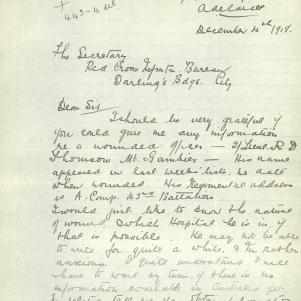 Adelaide
443-4
December 4th 1918.
The Secretary
Red Cross Inform. Bureau
Darling's Bdgs. City.
Dear Sir
I should be very grateful if
you could give me any information
re a wounded officer — 2/Lieut. R D
Thomson Mt. Gambier — His name
appeared in last week's lists, no date
when wounded. His Regimental address
is A. Comp. 43rd Battalion.
I would just like to know the nature
of wound, & which Hospital he is in if
that is possible. He may not be able
to write for quite a while. I'm rather
anxious. I quite understand I will
have to wait my turn, if there is no
information available in Australia yet.